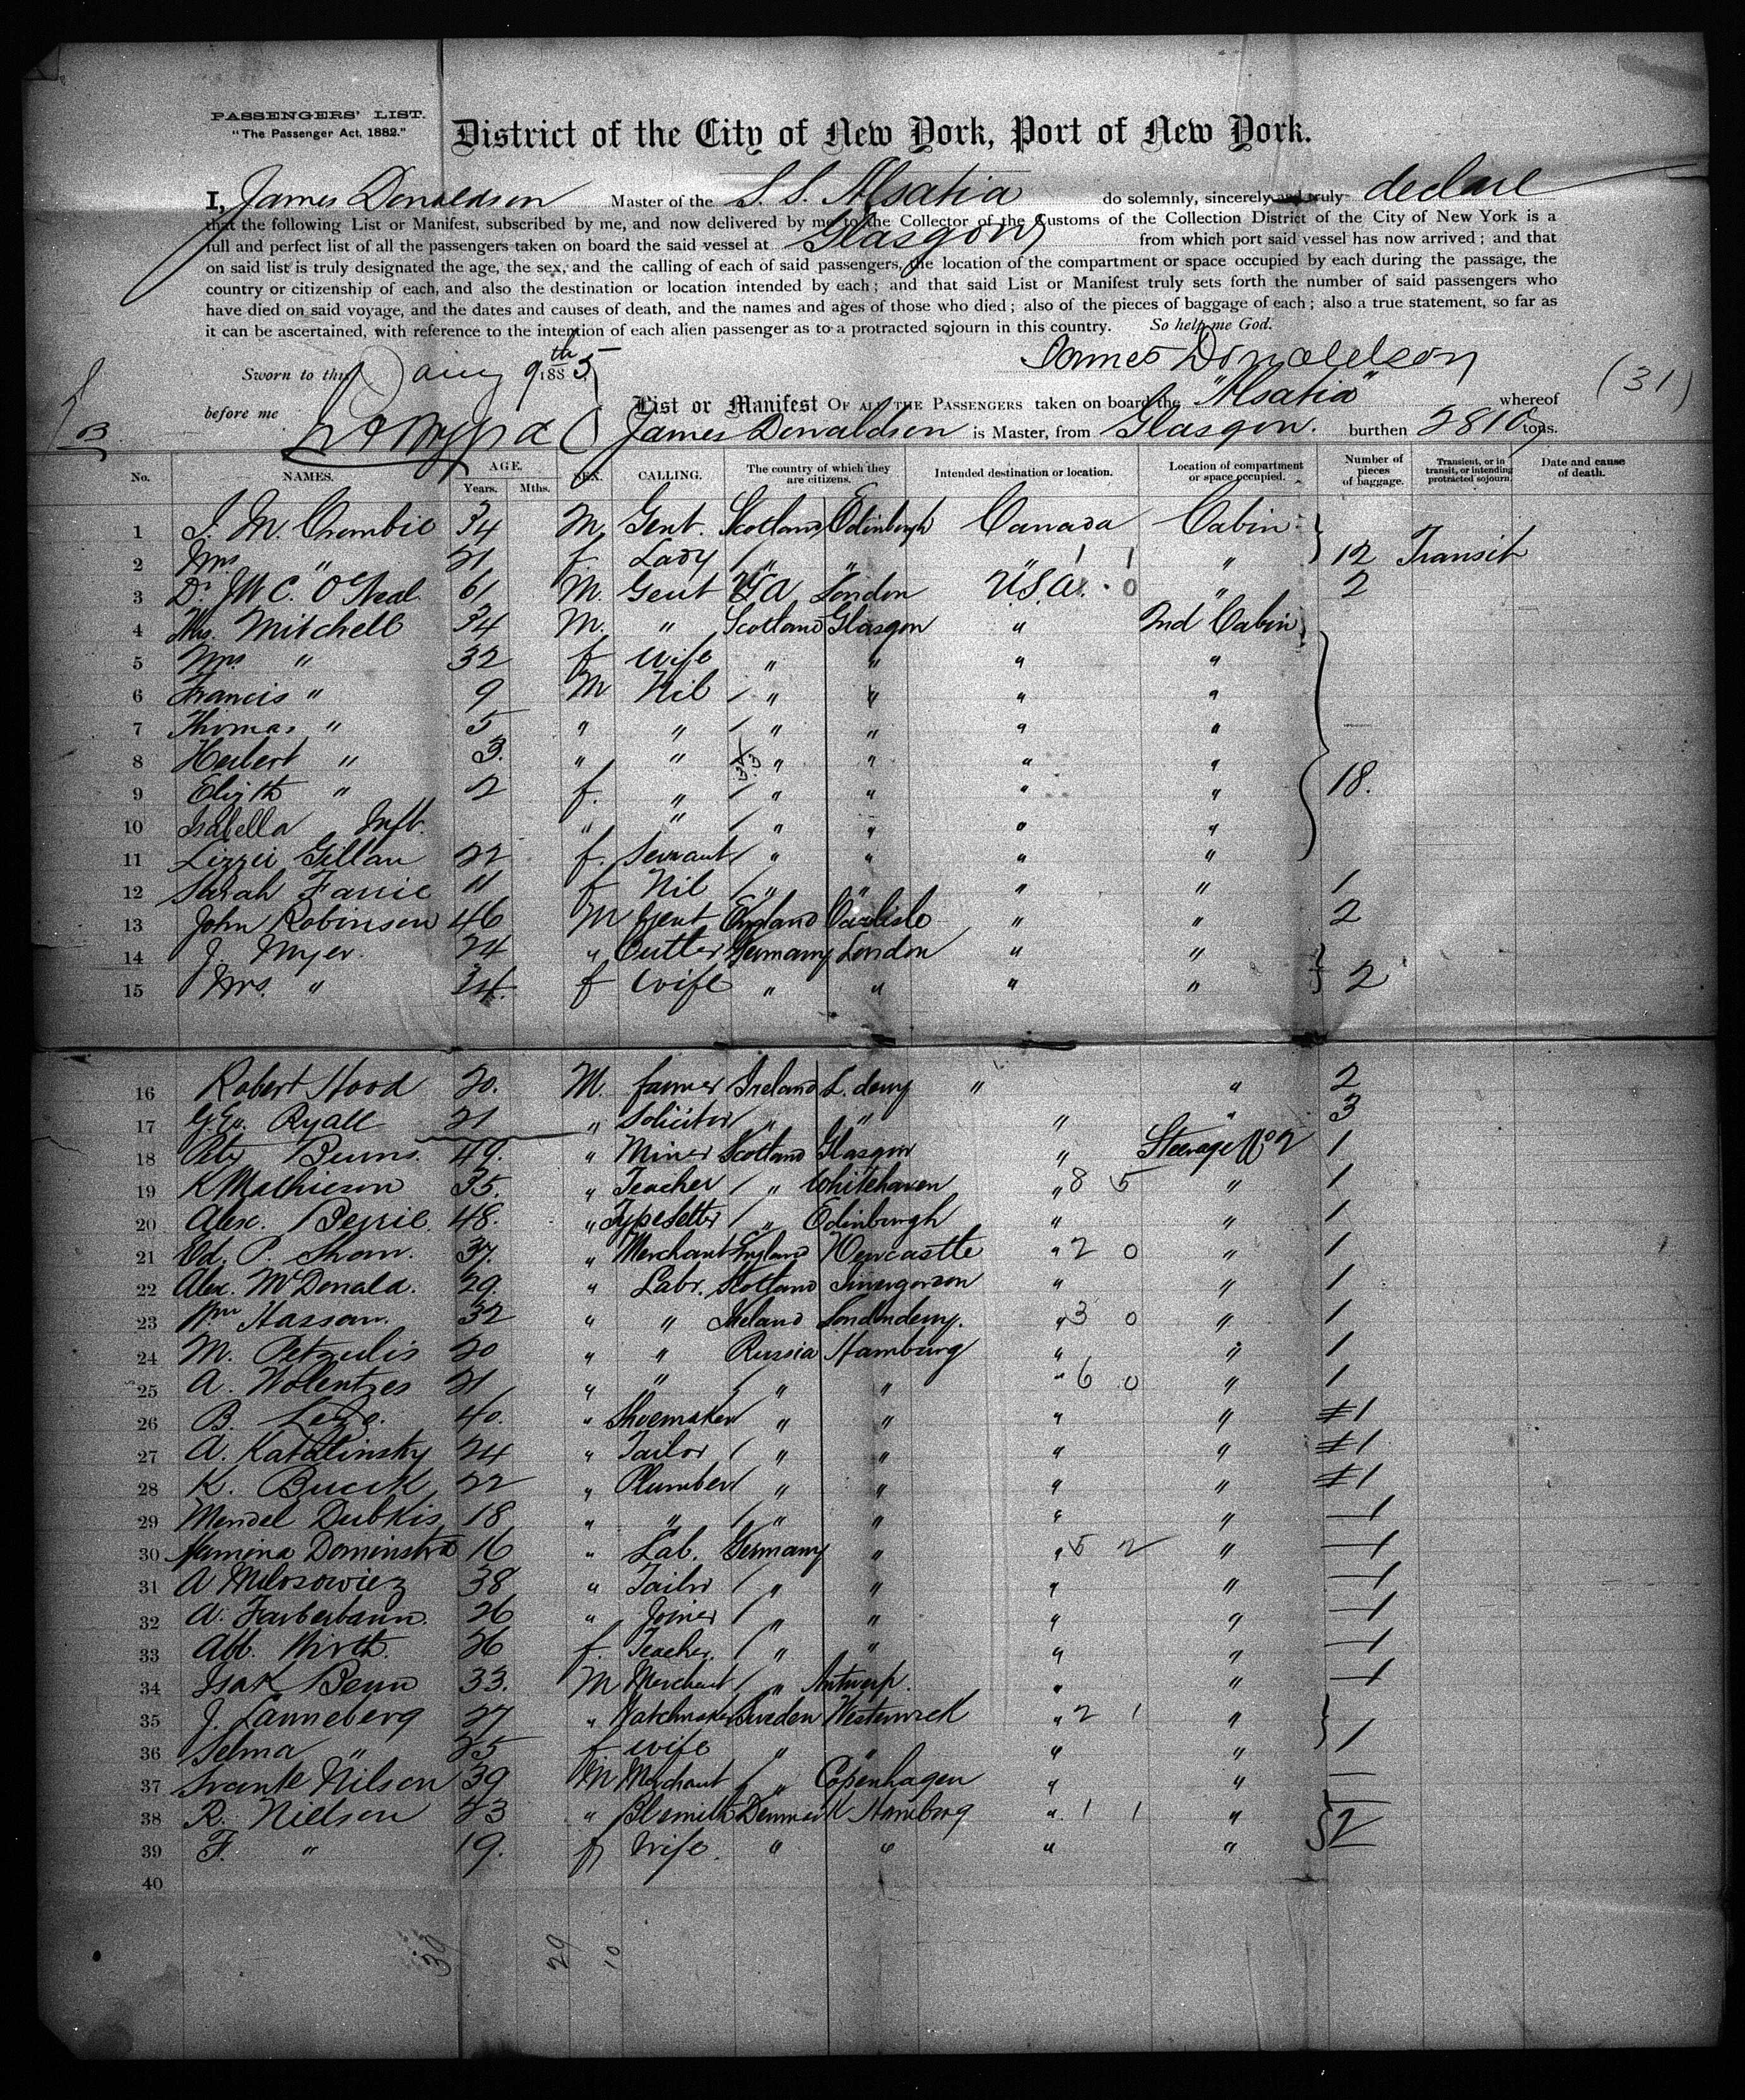 PASSENGERS' LIST.
"The Passenger Act, 1882."
District of the City of New York, Port of New York.
I, James Donaldson Master of the S. S. Alsatia do solemnly, sincerely and truly declare
that the following List or Manifest, subscribed by me, and now delivered by me to the Collector of the Customs of the Collection District of the City of New York is a
full and perfect list of all the passengers taken on board the said vessel at Glasgow from which port said vessel has now arrived; and that
on said list is truly designated the age, the sex, and the calling of each of said passengers, the location of the compartment or space occupied by each during the passage, the
country or citizenship of each, and also the destination or location intended by each; and that said List or Manifest truly sets forth the number of said passengers who
have died on said voyage, and the dates and causes of death, and the names and ages of those who died; also of the pieces of baggage of each; also a true statement, so far as
it can be ascertained, with reference to the intention of each alien passenger as to a protracted sojourn in this country. So help me God.
James Donaldson
Sworn to this Aug 9th 1885
(31)
before me
List or Manifest OF ALL THE PASSENGERS taken on board the "Alsatia" whereof
James Donaldson is Master, from Glasgow. burthen 2810 tons.
No. NAMES. AGE. Years. Mths. SEX. CALLING. The country of which they are citizens. Intended destination or location. Location of compartment or space occupied. Number of pieces of baggage. Transient, or in transit, or intending protracted sojourn. Date and cause of death.
1 J. M. Crombie 34 M Gent. Scotland Edinburgh Canada Cabin
2 Mrs " 21 f Lady " " " 1 1 " 12 Transit
3 Dr. O'Neal 61 M. Gent London U.S.A. 0 " 2
4 Mitchell 34 M. " Scotland Glasgow " 2nd Cabin
5 Mrs " 32 f wife " " " "
6 Francis " 9 M Nil " " " "
7 Thomas " 5 " " " " " "
8 Herbert " 3. " " " " " "
9 Elizth " 2 f. " " " " " 18.
10 Isabella Inft. " " " " " "
11 Lizzie Gillan 22 f. Servant " " " "
12 Sarah Farrie 11 f Nil " " " " 1
13 John Robinson 46 M Gent England Carlisle " " 2
14 J. Myer 24 " Cutler Germany London " "
15 Mrs. " 34. f wife " " " " 2
16 Robert Hood 20. M. farmer Ireland L. derry " " 2
17 Geo. Ryall 21 " Solicitor " " " " 3
18 Peter Burns. 49. " Miner Scotland Glasgow " Steerage No 2 1
19 K Mathieson 35. " Teacher " Whitehaven " 8 5 " 1
20 Alex. 48. " Typesetter " Edinburgh " " 1
21 Ed. P. Shaw. 37. " Merchant England Newcastle " 2 0 " 1
22 Alex. McDonald. 29. " Labr. Scotland Invergordon " " 1
23 Wm Hassan. 32 " " Ireland Londonderry. " 3 0 " 1
24 M. Petzulis 20 " " Russia Hamburg " " 1
25 A. Wolentzes 21 " " " " " 6 0 " 1
26 B. 40. " Shoemaker " " " " 1
27 A. Katalinsky 24 " Tailor " " " " 1
28 K. 22 " Plumber " " " " 1
29 Mendel Dubkis 18 " " " " " " 1
30 16 " Lab. Germany " " 5 2 " 1
31 A Milosowicz 38 " Tailor " " " " 1
32 A. Farberbaum. 26 " Joiner " " " " 1
33 Wirth. 26 f. Teacher. " " " " 1
34 Isak Benn 33. M Merchant " Antwerp. " " 1
35 J. Lanneberg 27 " Watchmaker Sweden Westerwick " 2 1 "
36 Selma " 25 f wife " " " " 1
37 Svante Nilson 39 M Merchant " Copenhagen " " —
38 R. Nielson 23 " Blsmith Denmark Hamburg " 1 1 " 2
39 F. " 19. f Wife. " " " "
40
39 29 10